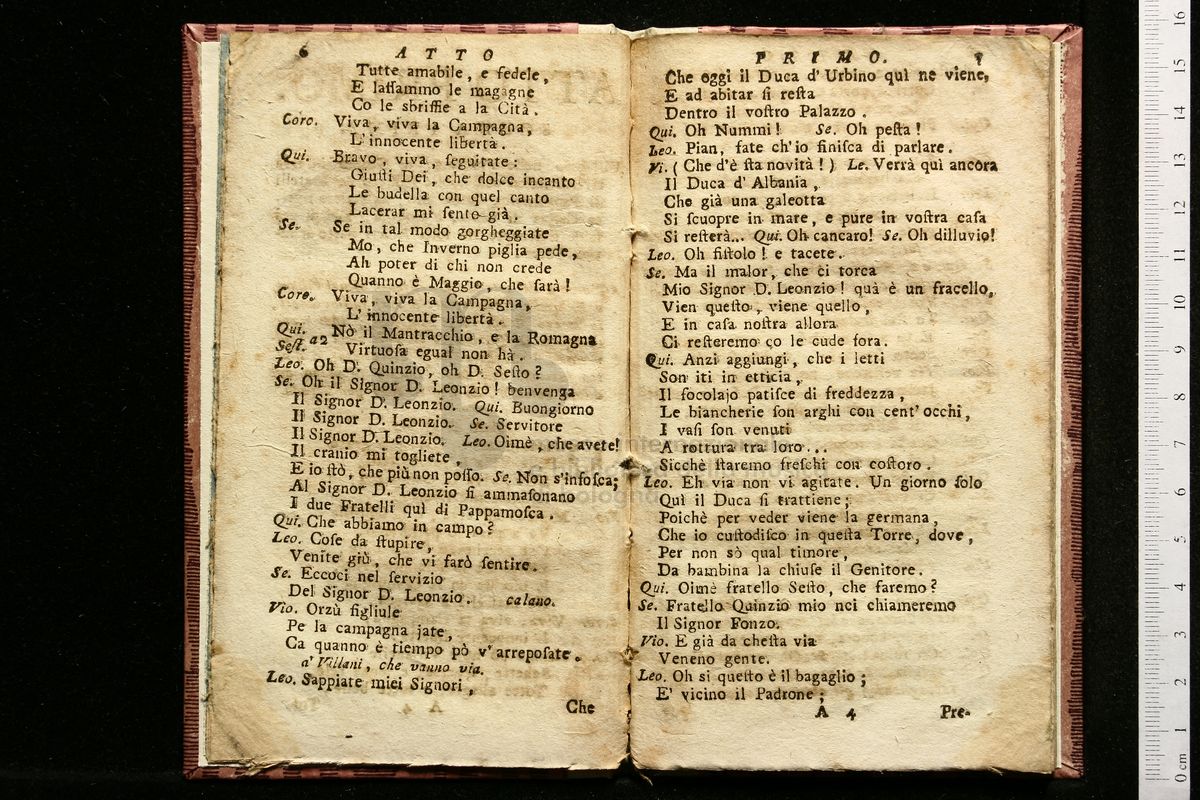 6 ATTO
Tutte amabile, e fedele,
E laſſammo le magagne
Co le sbriffie a la Cità.
Coro. Viva, viva la Campagna,
L'innocente libertà.
Qui. Bravo, viva, ſeguitate:
Giuſti Dei, che dolce incanto
Le budella con quel canto
Lacerar mi ſento già.
Se. Se in tal modo gorgheggiate
Mo, che Inverno piglia pede,
Ah poter di chi non crede
Quanno è Maggio, che ſarà!
Coro. Viva, viva la Campagna,
L'innocente libertà.
Qui. Nò il Mantracchio, e la Romagna
Seſt. a2 Virtuoſa egual non hà.
Leo. Oh D. Quinzio, oh D. Seſto?
Se. Oh il Signor D. Leonzio! benvenga
Il Signor D. Leonzio. Qui. Buongiorno
Il Signor D. Leonzio. Se. Servitore
Il Signor D. Leonzio. Leo. Oimè, che avete!
Il cranio mi togliete,
E io ſtò, che più non poſſo. Se. Non s'infoſca;
Al Signor D. Leonzio ſi ammaſonano
I due Fratelli quì di Pappamoſca.
Qui. Che abbiamo in campo?
Leo. Coſe da ſtupire,
Venite giù, che vi farò ſentire.
Se. Eccoci nel ſervizio
Del Signor D. Leonzio. calano.
Vio. Orzù figliule
Pe la campagna jate,
Ca quanno è tiempo pò v'arrepoſate.
a' Villani, che vanno via.
Leo. Sappiate miei Signori,
Che
PRIMO. 7
Che oggi il Duca d'Urbino quì ne viene,
E ad abitar ſi reſta
Dentro il voſtro Palazzo.
Qui. Oh Nummi! Se. Oh peſta!
Leo. Pian, fate ch'io finiſca di parlare.
Vi. (Che d'è ſta novità!) Le. Verrà quì ancora
Il Duca d'Albania,
Che già una galeotta
Si ſcuopre in mare, e pure in voſtra caſa
Si reſterà... Qui. Oh cancaro! Se. Oh dilluvio!
Leo. Oh fiſtolo! e tacete.
Se. Ma il malor, che ci torca
Mio Signor D. Leonzio! quà è un fracello,
Vien queſto, viene quello,
E in caſa noſtra allora
Ci reſteremo co le cude fora.
Qui. Anzi aggiungi, che i letti
Son iti in etticia,
Il focolajo patiſce di freddezza,
Le biancherie ſon arghi con cent'occhi,
I vaſi ſon venuti
A rottura tra loro...
Sicchè ſtaremo freſchi con coſtoro.
Leo. Eh via non vi agitate. Un giorno ſolo
Quì il Duca ſi trattiene;
Poichè per veder viene la germana,
Che io cuſtodiſco in queſta Torre, dove,
Per non sò qual timore,
Da bambina la chiuſe il Genitore.
Qui. Oimè fratello Seſto, che faremo?
Se. Fratello Quinzio mio nci chiameremo
Il Signor Fonzo.
Vio. E già da cheſta via
Veneno gente.
Leo. Oh sì queſto è il bagaglio;
E' vicino il Padrone;
A 4 Pre-
0 cm 1 2 3 4 5 6 7 8 9 10 11 12 13 14 15 16